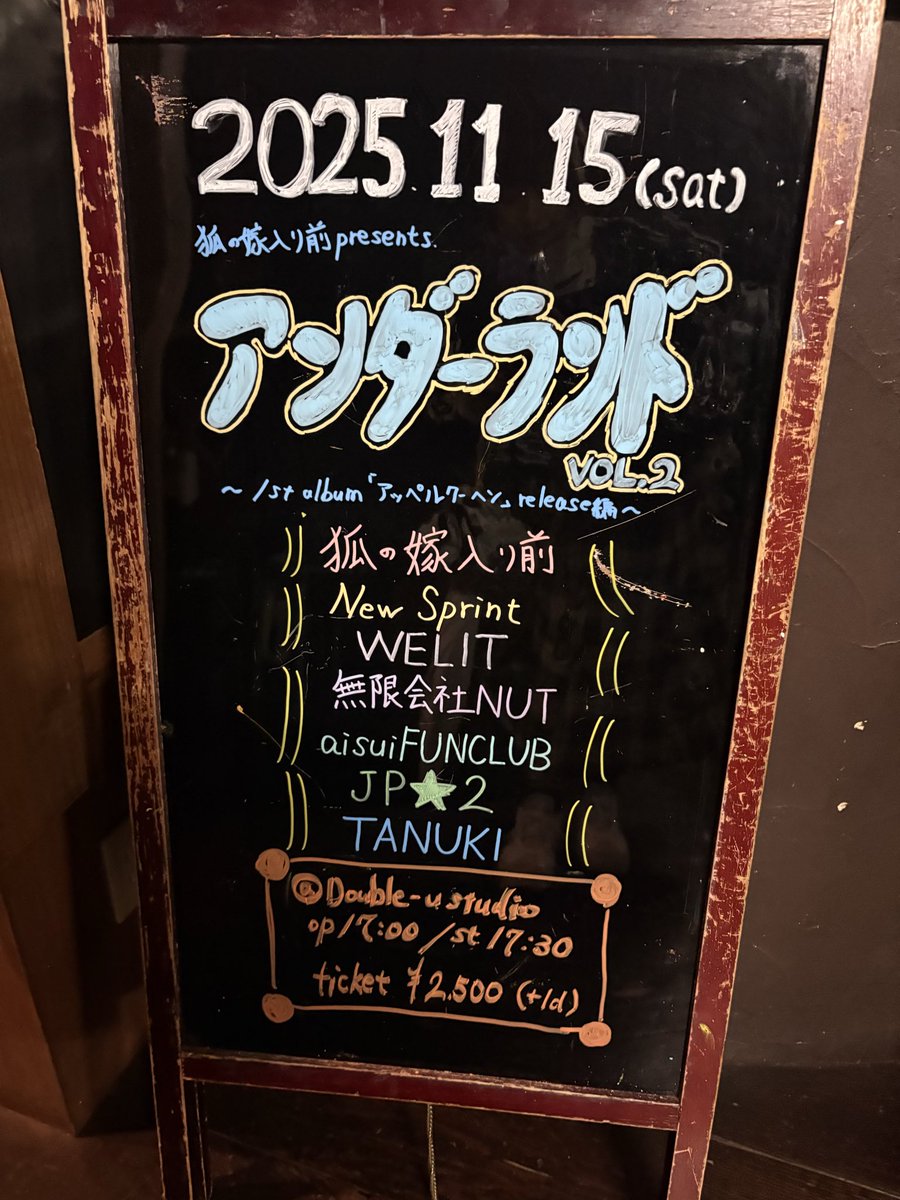 2025.11.15(Sat)
狐の嫁入り前presents.
アンダーランド
VOL.2
～1st album「アッペルクーヘン」release編～
狐の嫁入り前
New Sprint
WELIT
無限会社NUT
aisuiFUNCLUB
JP★2
TANUKI
@Double-u studio
op17:00/st17:30
ticket ¥2,500 (+1d)